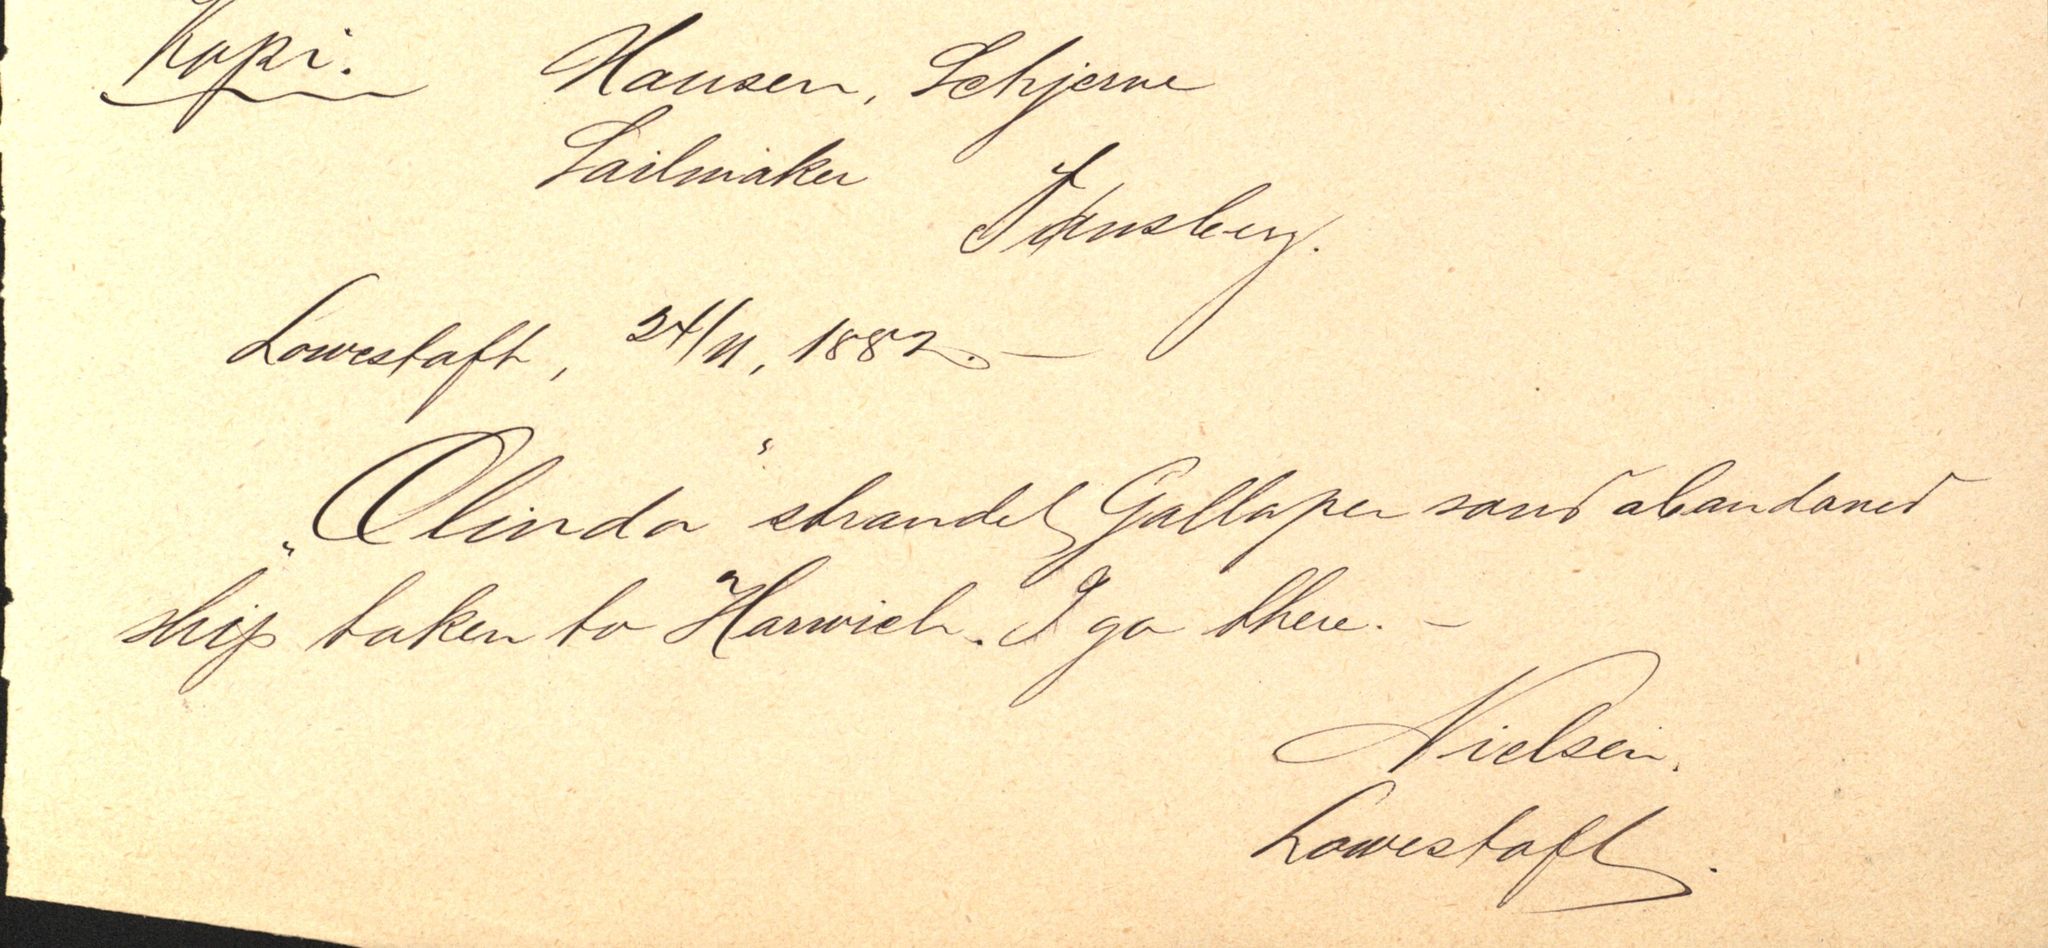 Kopi. Hansen, Schjerve
Sailmaker
Tønsberg.
Lowestoft, 24/11, 1882. —
„Olinda“ strandet Galloper sand abandoned
ship taken to Harwich. I go there. —
Nielsen.
Lowestoft.